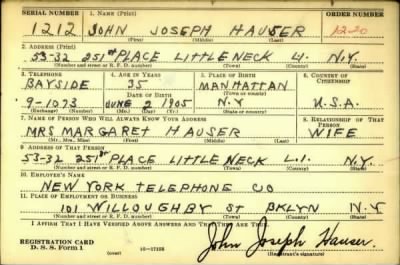 SERIAL NUMBER 1. NAME (Print) ORDER NUMBER
1212 JOHN JOSEPH HAUSER 1220
(First) (Middle) (Last)
2. ADDRESS (Print)
53-32 251st PLACE LITTLE NECK L.I. N.Y.
(Number and street or R. F. D. number) (Town) (County) (State)
3. TELEPHONE 4. AGE IN YEARS 5. PLACE OF BIRTH 6. COUNTRY OF CITIZENSHIP
BAYSIDE 35 MANHATTAN
DATE OF BIRTH (Town or county)
9-1073 JUNE 2 1905 N.Y U.S.A.
(Exchange) (No.) (Mo.) (Day) (Yr.) (State or country)
7. NAME OF PERSON WHO WILL ALWAYS KNOW YOUR ADDRESS 8. RELATIONSHIP OF THAT PERSON
MRS MARGARET HAUSER WIFE
(Mr., Mrs., Miss) (First) (Middle) (Last)
9. ADDRESS OF THAT PERSON
53-32 251st PLACE LITTLE NECK L.I. N.Y.
(Number and street or R. F. D. number) (Town) (County) (State)
10. EMPLOYER'S NAME
NEW YORK TELEPHONE CO
11. PLACE OF EMPLOYMENT OR BUSINESS
101 WILLOUGHBY ST BKLYN N-Y
(Number and street or R. F. D. number) (Town) (County) (State)
I AFFIRM THAT I HAVE VERIFIED ABOVE ANSWERS AND THAT THEY ARE TRUE.
REGISTRATION CARD John Joseph Hauser.
D. S. S. Form 1 (over) 16-17105 (Registrant's signature)